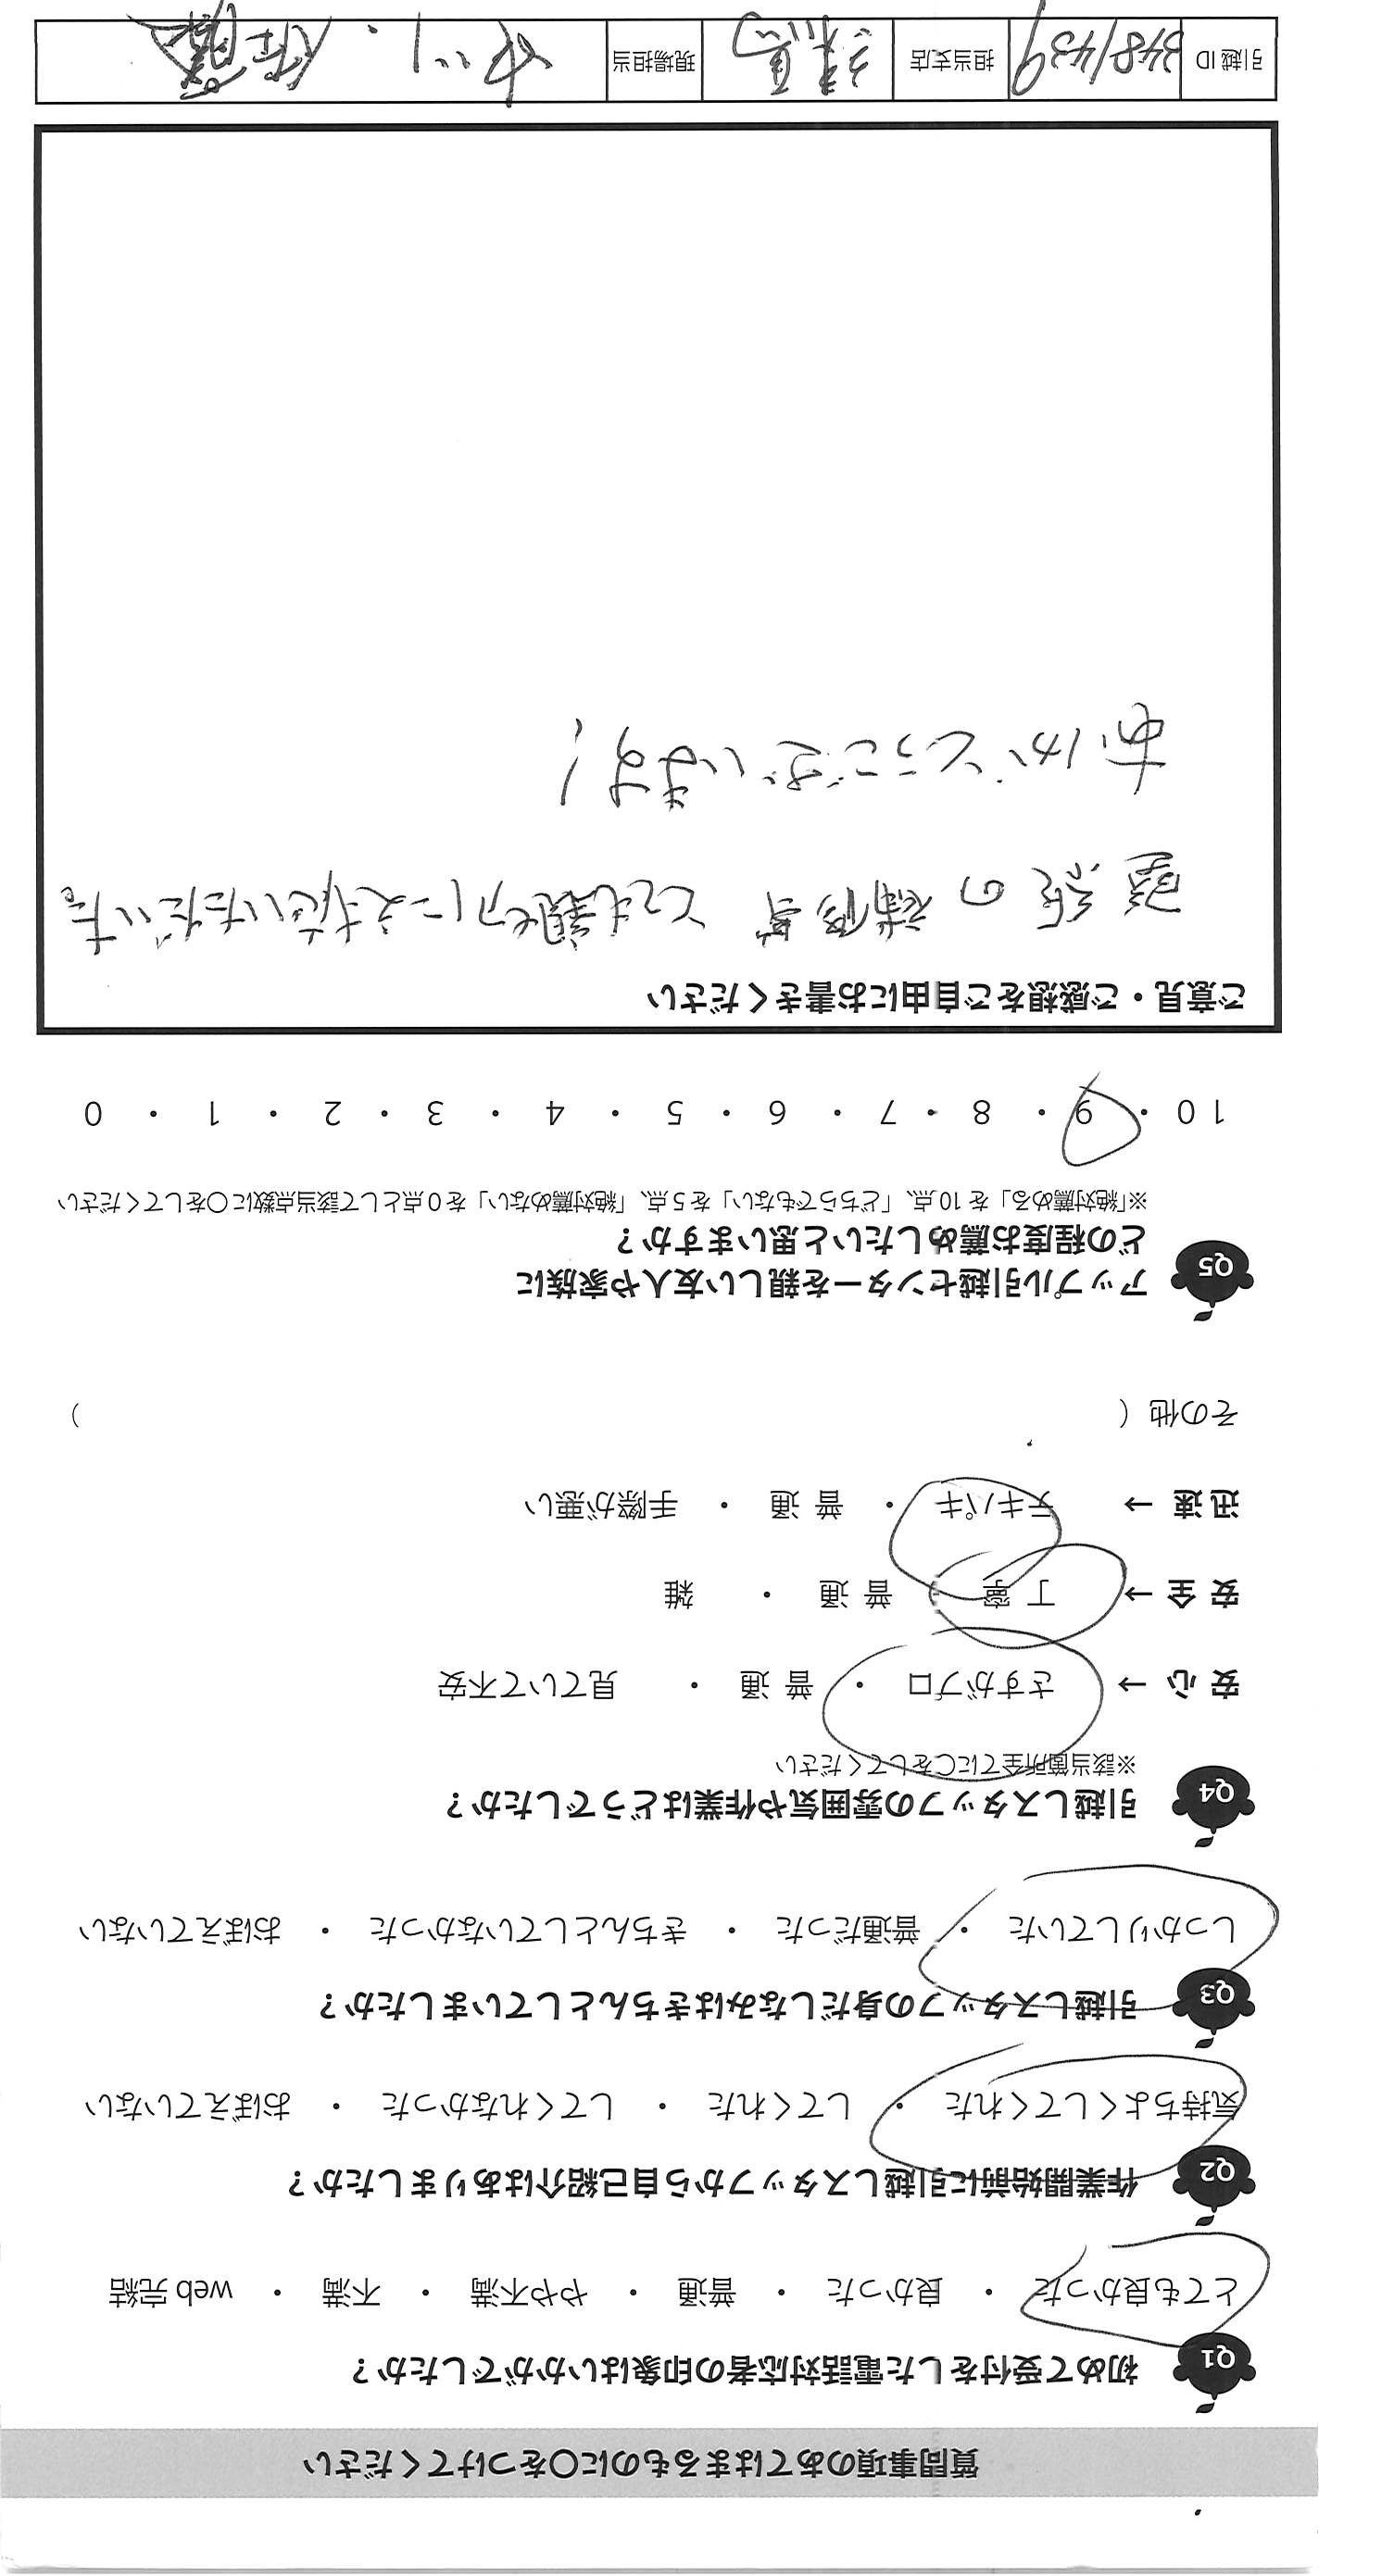 質問事項のあてはまるものに○をつけてください
Q1 初めて受付をした電話対応者の印象はいかがでしたか？
とても良かった ・ 良かった ・ 普通 ・ やや不満 ・ 不満 ・ web 完結
Q2 作業開始前に引越しスタッフから自己紹介はありましたか？
気持ちよくしてくれた ・ してくれた ・ してくれなかった ・ おぼえていない
Q3 引越しスタッフの身だしなみはきちんとしていましたか？
しっかりしていた ・ 普通だった ・ きちんとしていなかった ・ おぼえていない
Q4 引越しスタッフの雰囲気や作業はどうでしたか？
※該当箇所全てに○をしてください
安 心 → さすがプロ ・ 普 通 ・ 見ていて不安
安 全 → 丁 寧 ・ 普 通 ・ 雑
迅 速 → テキパキ ・ 普 通 ・ 手際が悪い
その他（ ）
Q5 アップル引越センターを親しい友人や家族に
どの程度お薦めしたいと思いますか？
※「絶対薦める」を10点、「どちらでもない」を5点、「絶対薦めない」を0点として該当点数に○をしてください
10 ・ 9 ・ 8 ・ 7 ・ 6 ・ 5 ・ 4 ・ 3 ・ 2 ・ 1 ・ 0
ご意見・ご感想をご自由にお書きください
壁紙の補修等 とても親切に対応いただいた。
ありがとうございます！
引越ID 3481439 担当支店 練馬 現場担当